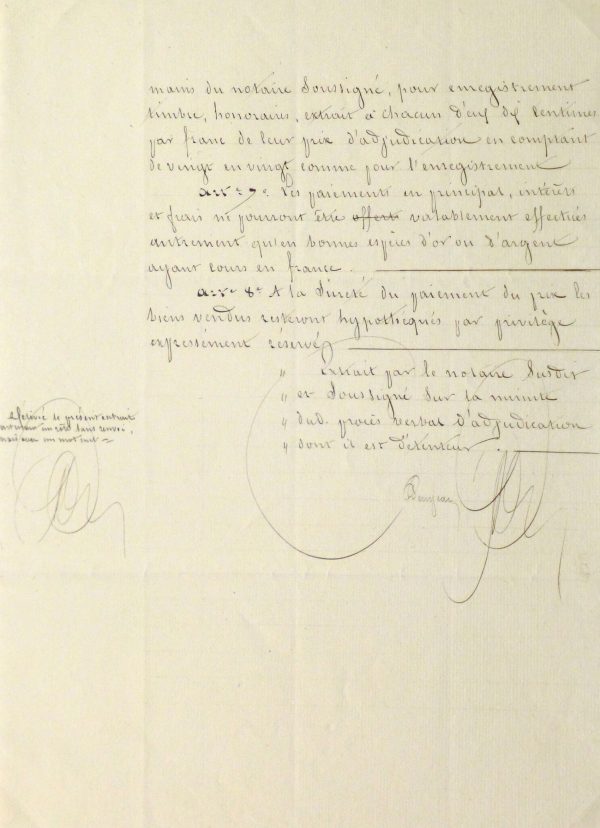 mains du notaire soussigné, pour enregistrement
timbre, honoraires, extrait à chacun d'eux dix centimes
par franc de leur prix d'adjudication en comptant
de vingt en vingt comme pour l'enregistrement
art. 7e. Les paiements en principal, intérêts
et frais ne pourront être offerts valablement effectués
autrement qu'en bonnes espèces d'or ou d'argent
ayant cours en france.
art. 8e A la sûreté du paiement du prix les
biens vendus resteront hypothéqués par privilège
expressément réservé
" Extrait par le notaire susdit
" et soussigné sur la minute
" dud. procès verbal d'adjudication
" dont il est détenteur.
le présent extrait
un rôle sans renvoi
mais avec un mot nul